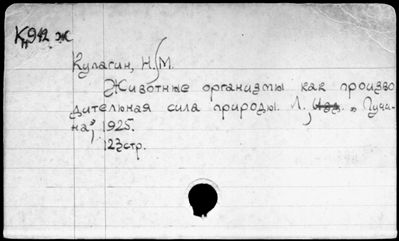 К942 ж
Кулагин, Н. М.
Животные организмы как произво
дительная сила природы. Л., Изд. „Пучи-
на", 1925.
123стр.